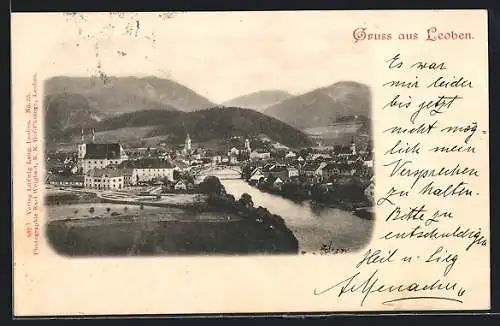 Gruss aus Leoben.
Es war
mir leider
bis jetzt
nicht mög-
lich mein
Versprechen
zu halten.
Bitte zu
entschuldigen
Heil u. Sieg
Verlag Ludwig Kamt, Leoben. No. 25.
Photographie Karl Weighart, K. K. Hof-Photogr., Leoben.